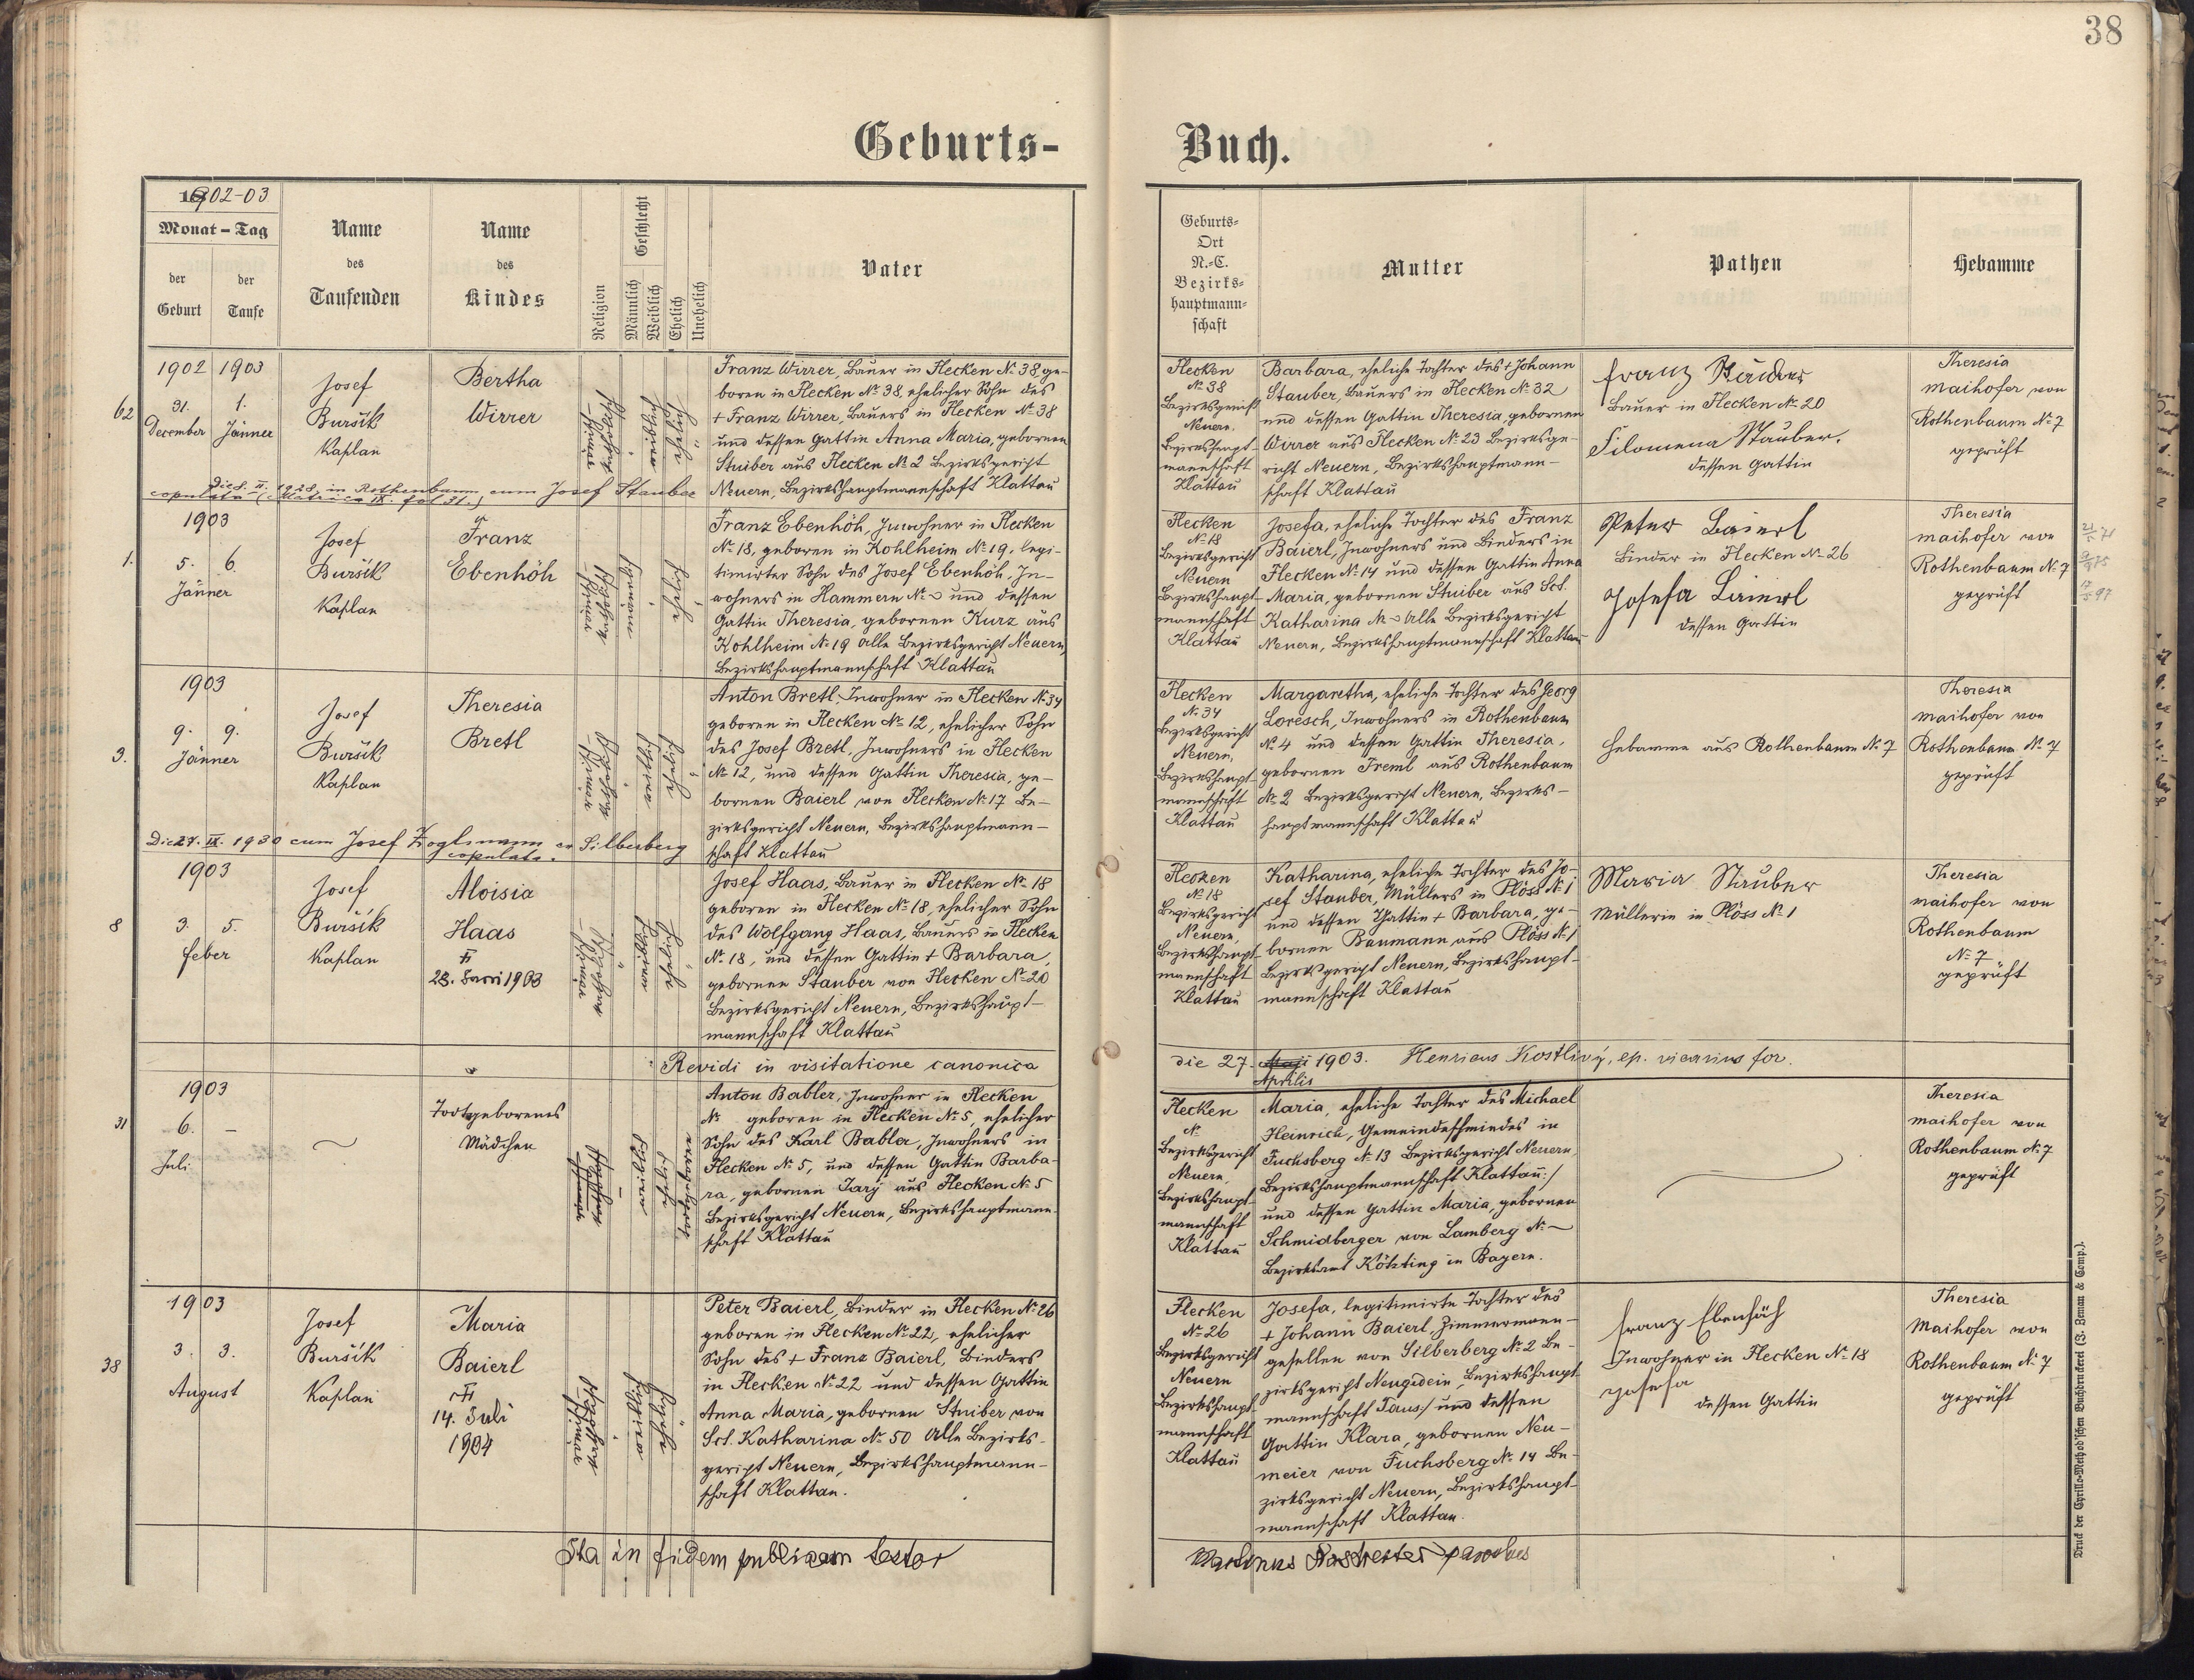 38
Geburts-
Buch.
1902-03
Monat – Tag
der Geburt
der Taufe
Name des Taufenden
Name des Kindes
Religion
Geschlecht
Männlich
Weiblich
Ehelich
Unehelich
Vater
Geburts-
Ort
N.-C.
Bezirks-
hauptmann-
schaft
Mutter
Pathen
Hebamme
62
1902 1903
31. 1.
December Jänner
Josef
Buršík
Kaplan
Bertha
Wirrer
Franz Wirrer, Bauer in Flecken № 38 ge-
boren in Flecken № 38, ehelicher Sohn des
+ Franz Wirrer, Bauers in Flecken № 38
und dessen Gattin Anna Maria, gebornen
Stuiber aus Flecken № 2 Bezirksgericht
Neuern, Bezirkshauptmannschaft Klattau
Die 8. II. 1928, in Rothenbaum cum Josef Stauber
copulata
Flecken
№ 38
Bezirksgericht
Neuern,
Bezirkshaupt-
mannschaft
Klattau
Barbara, eheliche Tochter des + Johann
Stauber, Bauers in Flecken № 32
und dessen Gattin Theresia, gebornen
Wirrer aus Flecken № 23 Bezirksge-
richt Neuern, Bezirkshauptmann-
schaft Klattau
Franz Stauber
Bauer in Flecken № 20
Filomena Stauber,
dessen Gattin
Theresia
Maihofer von
Rothenbaum № 7
geprüft
1.
1903
5. 6.
Jänner
Josef
Buršík
Kaplan
Franz
Ebenhöh
Franz Ebenhöh, Inwohner in Flecken
№ 18, geboren in Kohlheim № 19, legi-
timirter Sohn des Josef Ebenhöh, In-
wohners in Hammern № – und dessen
Gattin Theresia, gebornen Kurz aus
Kohlheim № 19 alle Bezirksgericht Neuern,
Bezirkshauptmannschaft Klattau
Flecken
№ 18
Bezirksgericht
Neuern
Bezirkshaupt-
mannschaft
Klattau
Josefa, eheliche Tochter des Franz
Baierl, Inwohners und Binders in
Flecken № 14 und dessen Gattin Anna
Maria, gebornen Stuiber aus Sct.
Katharina № – alle Bezirksgericht
Neuern, Bezirkshauptmannschaft Klattau
Peter Baierl
Binder in Flecken № 26
Josefa Baierl
dessen Gattin
Theresia
Maihofer von
Rothenbaum № 7
geprüft
3.
1903
9. 9.
Jänner
Josef
Buršík
Kaplan
Theresia
Bretl
Anton Bretl, Inwohner in Flecken № 34
geboren in Flecken № 12, ehelicher Sohn
des Josef Bretl, Inwohners in Flecken
№ 12, und dessen Gattin Theresia, ge-
bornen Baierl von Flecken № 17 Be-
zirksgericht Neuern, Bezirkshauptmann-
schaft Klattau
Die 27. IX. 1930 cum Josef Zoglmann ex Silberberg
copulata.
Flecken
№ 34
Bezirksgericht
Neuern,
Bezirkshaupt-
mannschaft
Klattau
Margaretha, eheliche Tochter des Georg
Loresch, Inwohners in Rothenbaum
№ 4 und dessen Gattin Theresia,
gebornen Treml aus Rothenbaum
№ 2 Bezirksgericht Neuern, Bezirks-
hauptmannschaft Klattau
Hebamme aus Rothenbaum № 7
Theresia
Maihofer von
Rothenbaum № 7
geprüft
8
1903
3. 5.
Feber
Josef
Buršík
Kaplan
Aloisia
Haas
Josef Haas, Bauer in Flecken № 18
geboren in Flecken № 18, ehelicher Sohn
des Wolfgang Haas, Bauers in Flecken
№ 18, und dessen Gattin + Barbara,
gebornen Stauber von Flecken № 20
Bezirksgericht Neuern, Bezirkshaupt-
mannschaft Klattau
Flecken
№ 18
Bezirksgericht
Neuern,
Bezirkshaupt-
mannschaft
Klattau
Katharina, eheliche Tochter des Jo-
sef Stauber, Müllers in Plöss № 1
und dessen Gattin + Barbara, ge-
bornen Baumann aus Plöss № 1
Bezirksgericht Neuern, Bezirkshaupt-
mannschaft Klattau
Maria Stauber
Müllerin in Plöss № 1
Theresia
Maihofer von
Rothenbaum
№ 7
geprüft
Revidi in visitatione canonica
die 27. Maji Aprilis 1903. Henricus Kostlivý, ep. vicarius for.
31
1903
6. –
Juli
Todtgeborenes
Mädchen
Anton Babler, Inwohner in Flecken
№ geboren in Flecken № 5, ehelicher
Sohn des Karl Babler, Inwohners in
Flecken № 5, und dessen Gattin Barba-
ra, gebornen Jarÿ aus Flecken № 5
Bezirksgericht Neuern, Bezirkshauptmann-
schaft Klattau
Flecken
№
Bezirksgericht
Neuern,
Bezirkshaupt-
mannschaft
Klattau
Maria, eheliche Tochter des Michael
Heinrich, Gemeindeschmiedes in
Fuchsberg № 13 Bezirksgericht Neuern
Bezirkshauptmannschaft Klattau:/
und dessen Gattin Maria, gebornen
Schmidberger von Lamberg № –
Bezirksamt Kötzting in Bayern.
Theresia
Maihofer von
Rothenbaum № 7
geprüft
38
1903
3. 3.
August
Josef
Buršík
Kaplan
Maria
Baierl
14. Juli
1904
Peter Baierl, Binder in Flecken № 26
geboren in Flecken № 22, ehelicher
Sohn des + Franz Baierl, Binders
in Flecken № 22 und dessen Gattin
Anna Maria, gebornen Stuiber von
Sct. Katharina № 50 alle Bezirks-
gericht Neuern, Bezirkshauptmann-
schaft Klattau.
Flecken
№ 26
Bezirksgericht
Neuern
Bezirkshaupt-
mannschaft
Klattau
Josefa, legitimirte Tochter des
+ Johann Baierl, Zimmermann-
gesellen von Silberberg № 2 Be-
zirksgericht Neugedein, Bezirkshaupt-
mannschaft Taus:/ und dessen
Gattin Klara, gebornen Neu-
meier von Fuchsberg № 14 Be-
zirksgericht Neuern, Bezirkshaupt-
mannschaft Klattau.
Franz Ebenhöh
Inwohner in Flecken № 18
Josefa
dessen Gattin
Theresia
Maihofer von
Rothenbaum № 7
geprüft
Ita in fidem publicam testor
parochus
Druck der Cyrillo-Method'schen Buchdruckerei (J. Zeman & Comp.).